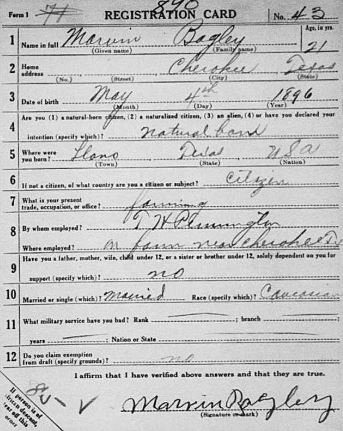 890
Form 1 REGISTRATION CARD No. 43
1 Name in full Marvin Bagley Age, in yrs. 21
(Given name) (Family name)
2 Home address Cherokee Texas
(No.) (Street) (City) (State)
3 Date of birth May 4th 1896
(Month) (Day) (Year)
4 Are you (1) a natural-born citizen, (2) a naturalized citizen, (3) an alien, (4) or have you declared your
intention (specify which)? natural born
5 Where were you born? Llano Texas USA
(Town) (State) (Nation)
6 If not a citizen, of what country are you a citizen or subject? Citizen
7 What is your present trade, occupation, or office? farming
8 By whom employed? T H
Where employed? farm near Cherokee
9 Have you a father, mother, wife, child under 12, or a sister or brother under 12, solely dependent on you for
support (specify which)? no
10 Married or single (which)? Married Race (specify which)? Caucasian
11 What military service have you had? Rank ; branch ;
years ; Nation or State
12 Do you claim exemption from draft (specify grounds)? no
I affirm that I have verified above answers and that they are true.
If person is of
African descent,
tear off this
corner
Marvin Bagley
(Signature or mark)